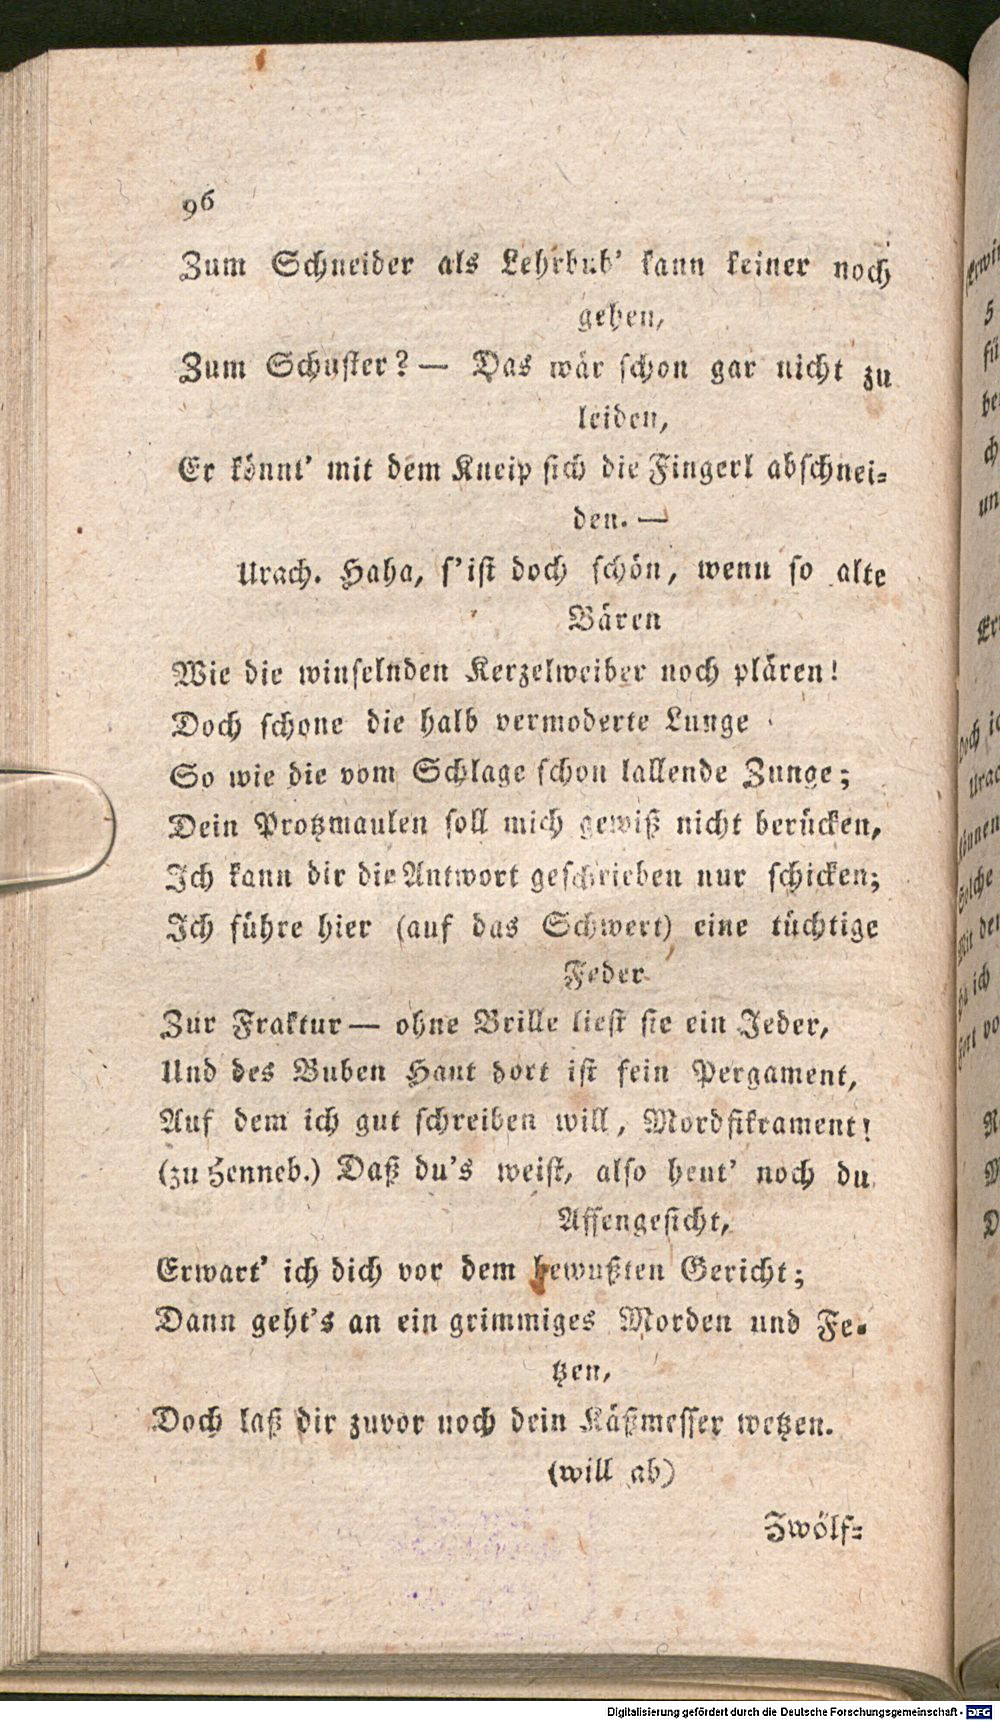 96
Zum Schneider als Lehrbub' kann keiner noch
gehen,
Zum Schuster? — Das wär schon gar nicht zu
leiden,
Er könnt' mit dem Kneip sich die Fingerl abschnei-
den. —
Urach. Haha, s'ist doch schön, wenn so alte
Bären
Wie die winselnden Kerzelweiber noch plären!
Doch schone die halb vermoderte Lunge
So wie die vom Schlage schon lallende Zunge;
Dein Protzmaulen soll mich gewiß nicht berücken,
Ich kann dir die Antwort geschrieben nur schicken;
Ich führe hier (auf das Schwert) eine tüchtige
Feder
Zur Fraktur — ohne Brille liest sie ein Jeder,
Und des Buben Haut dort ist fein Pergament,
Auf dem ich gut schreiben will, Mordsikrament!
(zu Henneb.) Daß du's weist, also heut' noch du
Affengesicht,
Erwart' ich dich vor dem bewußten Gericht;
Dann geht's an ein grimmiges Morden und Fe-
tzen,
Doch laß dir zuvor noch dein Käßmesser wetzen.
(will ab)
Zwölf-
Digitalisierung gefördert durch die Deutsche Forschungsgemeinschaft - DFG